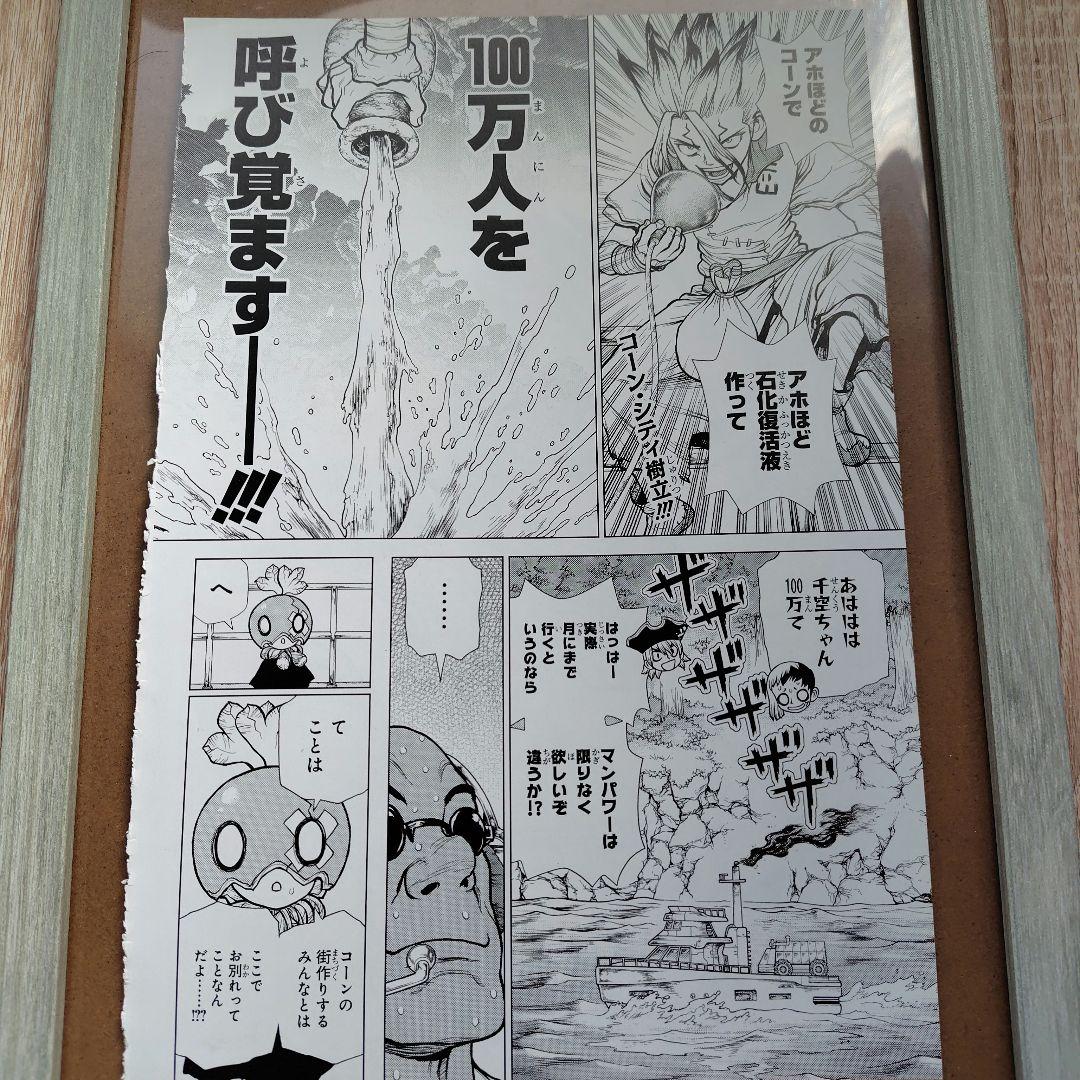 アホほどの
コーンで
アホほど
石化復活液
作って
コーン・シティ樹立!!!
100万人を
呼び覚ます――!!!
あははは
千空ちゃん
100万て
ザザザザザザザ
はっはー
実際
月にまで
行くと
いうのなら
マンパワーは
限りなく
欲しいぞ
違うか!?
……
へ
て
ことは
コーンの
街作りする
みんなとは
ここで
お別れって
ことなん
だよ……!??